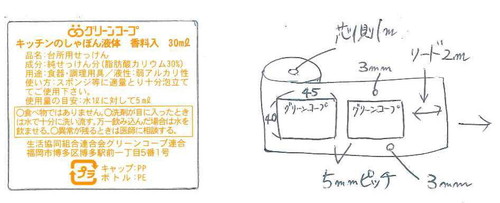 グリーンコープ
キッチンのしゃぼん液体 香料入 30ml
品名:台所用せっけん
成分:純せっけん分(脂肪酸カリウム30%)
用途:食器・調理用具/液性:弱アルカリ性
使い方:スポンジ等に適量とり十分泡立て
てご使用下さい。
使用量の目安:水1ℓに対して5mℓ
○食べ物ではありません。○洗剤が目に入ったとき
は水で十分に洗い流す。万一飲み込んだ場合は水を
飲ませる。○異常が残るときは医師に相談する。
生活協同組合連合会グリーンコープ連合
福岡市博多区博多駅前一丁目5番1号
プラ
キャップ:PP
ボトル:PE
芯1側1m
リード2m
3mm
45
40
グリーンコープ
グリーンコープ
5mmピッチ
3mm